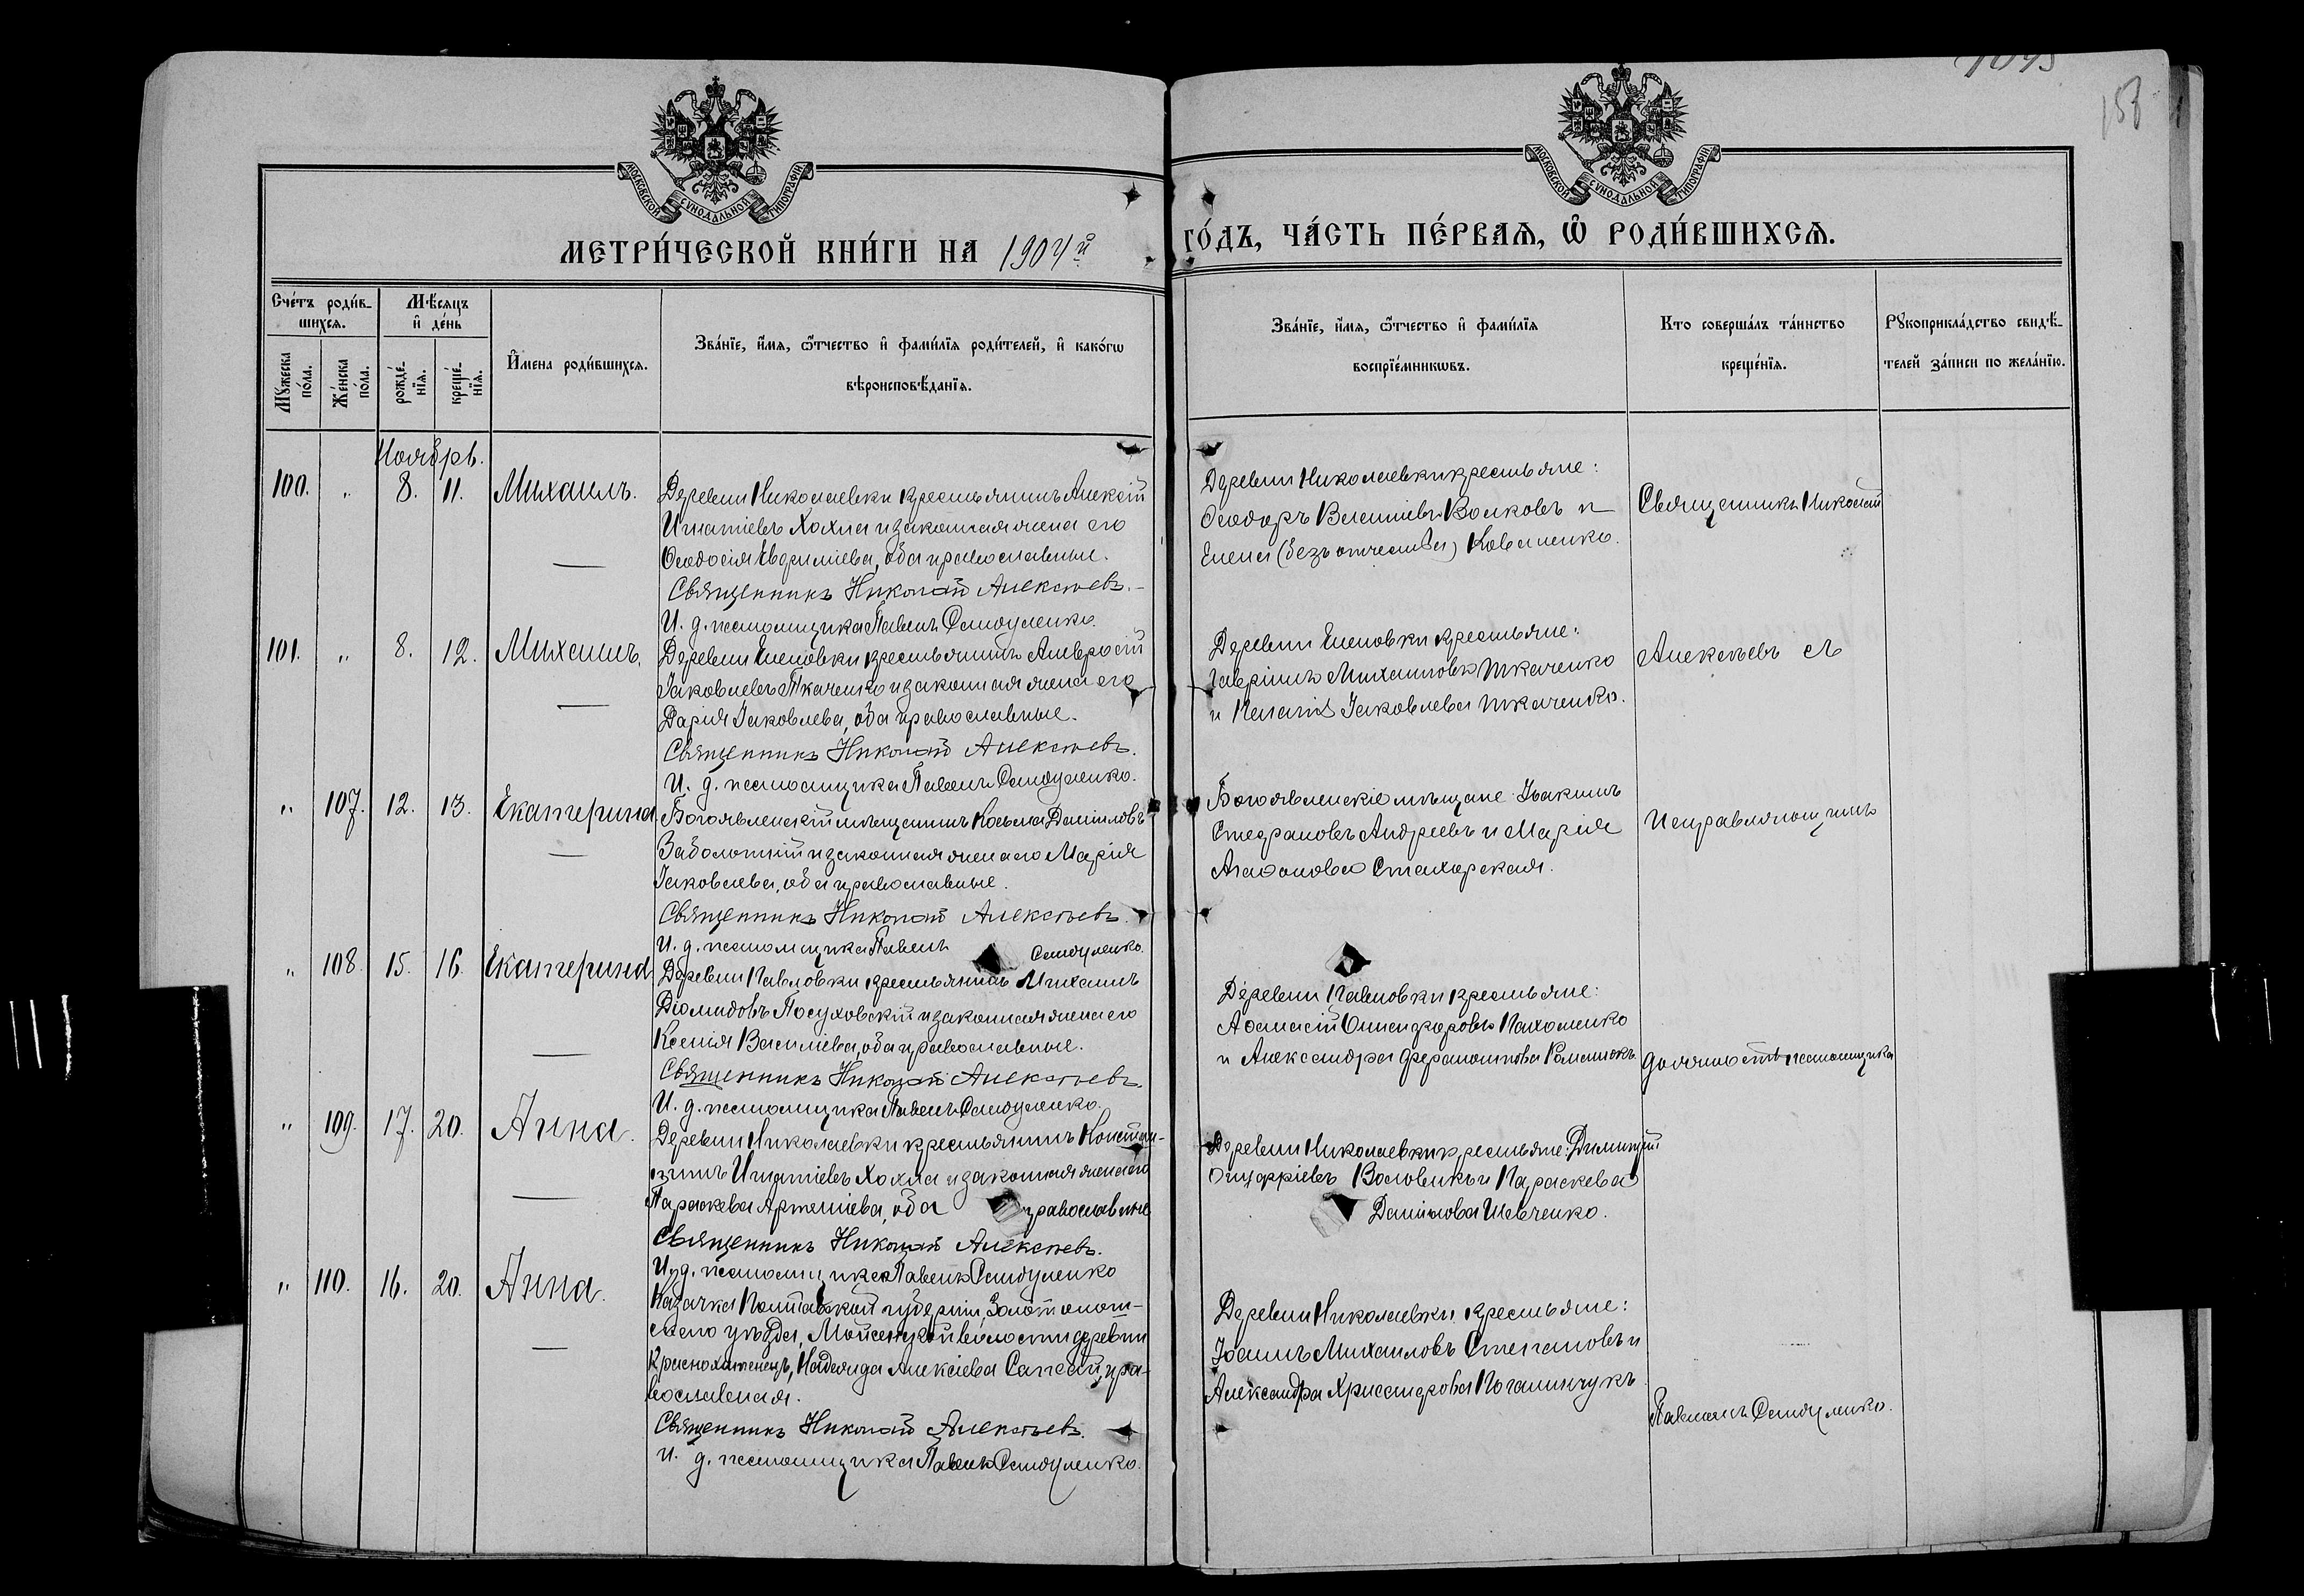 1043
158
МОСКОВСКОЙ СѴНОДАЛЬНОЙ ТИПОГРАФІИ
МОСКОВСКОЙ СѴНОДАЛЬНОЙ ТИПОГРАФІИ
МЕТРИ́ЧЕСКОЙ КНИ́ГИ НА 1904й
ГО́ДЪ, ЧА́СТЬ ПЕ́РВАѦ, Ѡ҆ РОДИ́ВШИХСѦ.
Сче́тъ роди́в-
шихсѧ.
Мѣ́сѧцъ
и҆ де́нь
Мꙋ́жеска
по́ла.
Же́нска
по́ла.
рожде́-
нїѧ.
креще́-
нїѧ.
И҆мена роди́вшихсѧ.
Зва́нїе, и҆́мѧ, ѻ҆́тчество и҆ фами́лїѧ роди́телей, и҆ како́гѡ
вѣроисповѣ́данїѧ.
Зва́нїе, и҆́мѧ, ѻ҆́тчество и҆ фами́лїѧ
воспрїе́мникѡвъ.
Кто соверша́лъ та́инство
креще́нїѧ.
Рꙋкоприкла́дство свидѣ́-
телей за́писи по жела́нїю.
Ноябрь.
100. " 8. 11. Михаилъ.
Деревни Николаевки крестьянинъ Алексій
Игнатіевъ Хохла и законная жена его
Ѳеодосія Евфиміева, оба православные.
Священникъ Николай Алексѣевъ.
И. д. псаломщика Павелъ Самойленко.
Деревни Николаевки крестьяне:
Ѳеодоръ Василіевъ Волковъ и
Елена (безъ отчества) Коваленко.
Священникъ Николай
101. " 8. 12. Михаилъ.
Деревни Еленовки крестьянинъ Амвросій
Іаковлевъ Ткаченко и законная жена его
Дарія Іаковлева, оба православные.
Священникъ Николай Алексѣевъ.
И. д. псаломщика Павелъ Самойленко.
Деревни Еленовки крестьяне:
Гавріилъ Михаиловъ Ткаченко
и Пелагія Іаковлева Ткаченко.
Алексѣевъ съ
" 107. 12. 13. Екатерина
Богоявленскій мѣщанинъ Косьма Даніиловъ
Заболотній и законная жена его Марія
Іаковлева, оба православные.
Священникъ Николай Алексѣевъ.
И. д. псаломщика Павелъ Самойленко.
Богоявленскіе мѣщане Іоакимъ
Стефановъ Андреевъ и Марія
Агаѳонова Стахорская.
Исправляющимъ
" 108. 15. 16. Екатерина
Деревни Павловки крестьянинъ Михаилъ
Діомидовъ Посуховскій и законная жена его
Ксенія Василіева, оба православные.
Священникъ Николай Алексѣевъ.
И. д. псаломщика Павелъ Самойленко.
Деревни Павловки крестьяне:
Аѳанасій Пахоменко
и Александра Романюкъ
должность псаломщика
" 109. 17. 20. Анна.
Деревни Николаевки крестьянинъ Констан-
тинъ Игнатіевъ Хохла и законная жена его
Параскева Артеміева, оба православные
Священникъ Николай Алексѣевъ.
И. д. псаломщика Павелъ Самойленко
Деревни Николаевки крестьяне: Димитрій
Онуфріевъ Воловикъ и Параскева
Даніилова Шевченко.
" 110. 16. 20. Анна.
Казачка Полтавской губерніи, Золотонош-
скаго уѣзда, Мойсенской волости деревни
Краснохатенецъ, Надежда Алексіева Сапсай, пра-
вославная.
Священникъ Николай Алексѣевъ.
И. д. псаломщика Павелъ Самойленко.
Деревни Николаевки крестьяне:
Іоаннъ Михаиловъ Степановъ и
Александра Хрисанфова
Павломъ Самойленко.